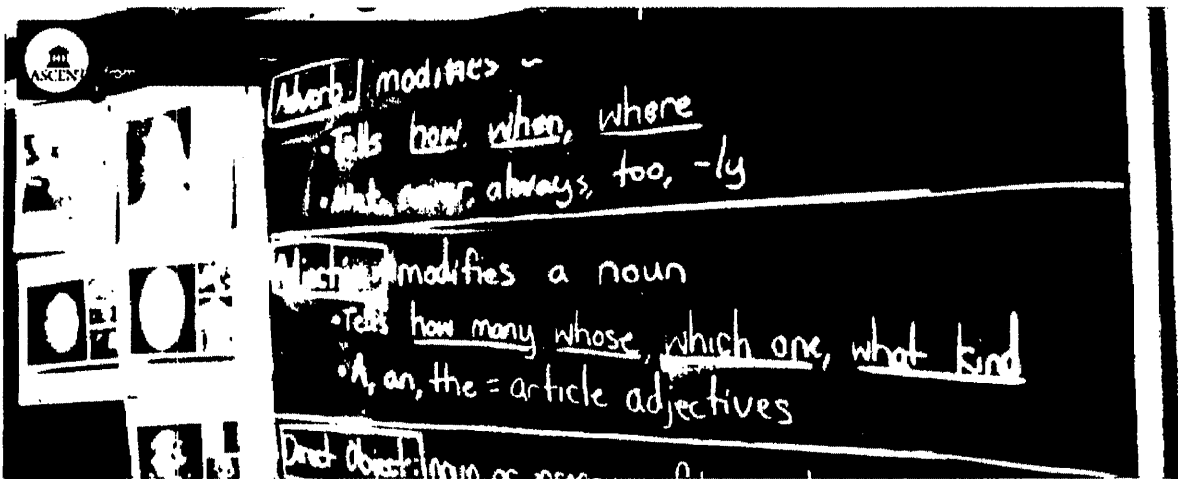 ASCENT
from
Adverb: modifies
• Tells how, when, where
• Not, never, always, too, -ly
Adjective: modifies a noun
• Tells how many, whose, which one, what kind
• A, an, the = article adjectives
Direct Object: noun or